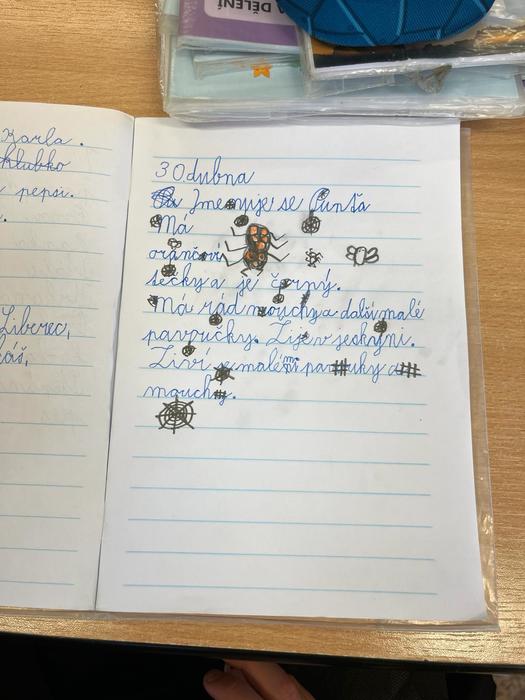 A DĚLENÍ
Karla.
klubko
pepsi.
Liberec,
30dubna
Jmenuje se Punťa
Ma
oranžoví
tečky a je černý.
Má rád mouchy a další malé
pavoučky. Žije v jeskyni.
Živí se malémi pavouky a
mouchy.